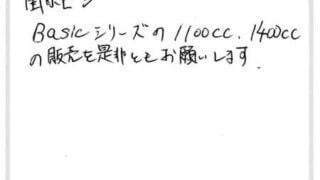 Basicシリーズの1100cc、1400cc
の販売を是非ともお願いします.